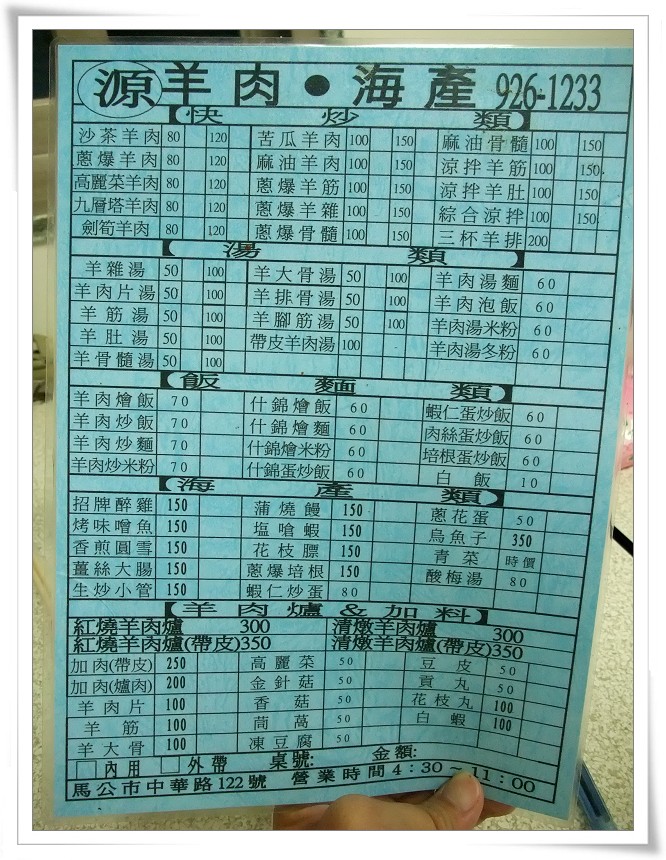 源 羊肉●海產 926-1233
【快炒類】
沙茶羊肉 80 120 苦瓜羊肉 100 150 麻油骨髓 100 150
蔥爆羊肉 80 120 麻油羊肉 100 150 涼拌羊筋 100 150
高麗菜羊肉 80 120 蔥爆羊筋 100 150 涼拌羊肚 100 150
九層塔羊肉 80 120 蔥爆羊雜 100 150 綜合涼拌 100 150
劍筍羊肉 80 120 蔥爆骨髓 100 150 三杯羊排 200
【湯類】
羊雜湯 50 100 羊大骨湯 50 100 羊肉湯麵 60
羊肉片湯 50 100 羊排骨湯 50 100 羊肉泡飯 60
羊筋湯 50 100 羊腳筋湯 50 100 羊肉湯米粉 60
羊肚湯 50 100 帶皮羊肉湯 100 羊肉湯冬粉 60
羊骨髓湯 50 100
【飯麵類】
羊肉燴飯 70 什錦燴飯 60 蝦仁蛋炒飯 60
羊肉炒飯 70 什錦燴麵 60 肉絲蛋炒飯 60
羊肉炒麵 70 什錦燴米粉 60 培根蛋炒飯 60
羊肉炒米粉 70 什錦蛋炒飯 60 白飯 10
【海產類】
招牌醉雞 150 蒲燒饅 150 蔥花蛋 50
烤味噌魚 150 塩嗆蝦 150 烏魚子 350
香煎圓雪 150 花枝膘 150 青菜 時價
薑絲大腸 150 蔥爆培根 150 酸梅湯 80
生炒小管 150 蝦仁炒蛋 80
【羊肉爐&加料】
紅燒羊肉爐 300 清燉羊肉爐 300
紅燒羊肉爐(帶皮)350 清燉羊肉爐(帶皮)350
加肉(帶皮) 250 高麗菜 50 豆皮 50
加肉(爐肉) 200 金針菇 50 貢丸 50
羊肉片 100 香菇 50 花枝丸 100
羊筋 100 茼萵 50 白蝦 100
羊大骨 100 凍豆腐 50
□內用 □外帶 桌號: 金額:
馬公市中華路122號 營業時間4:30~11:00